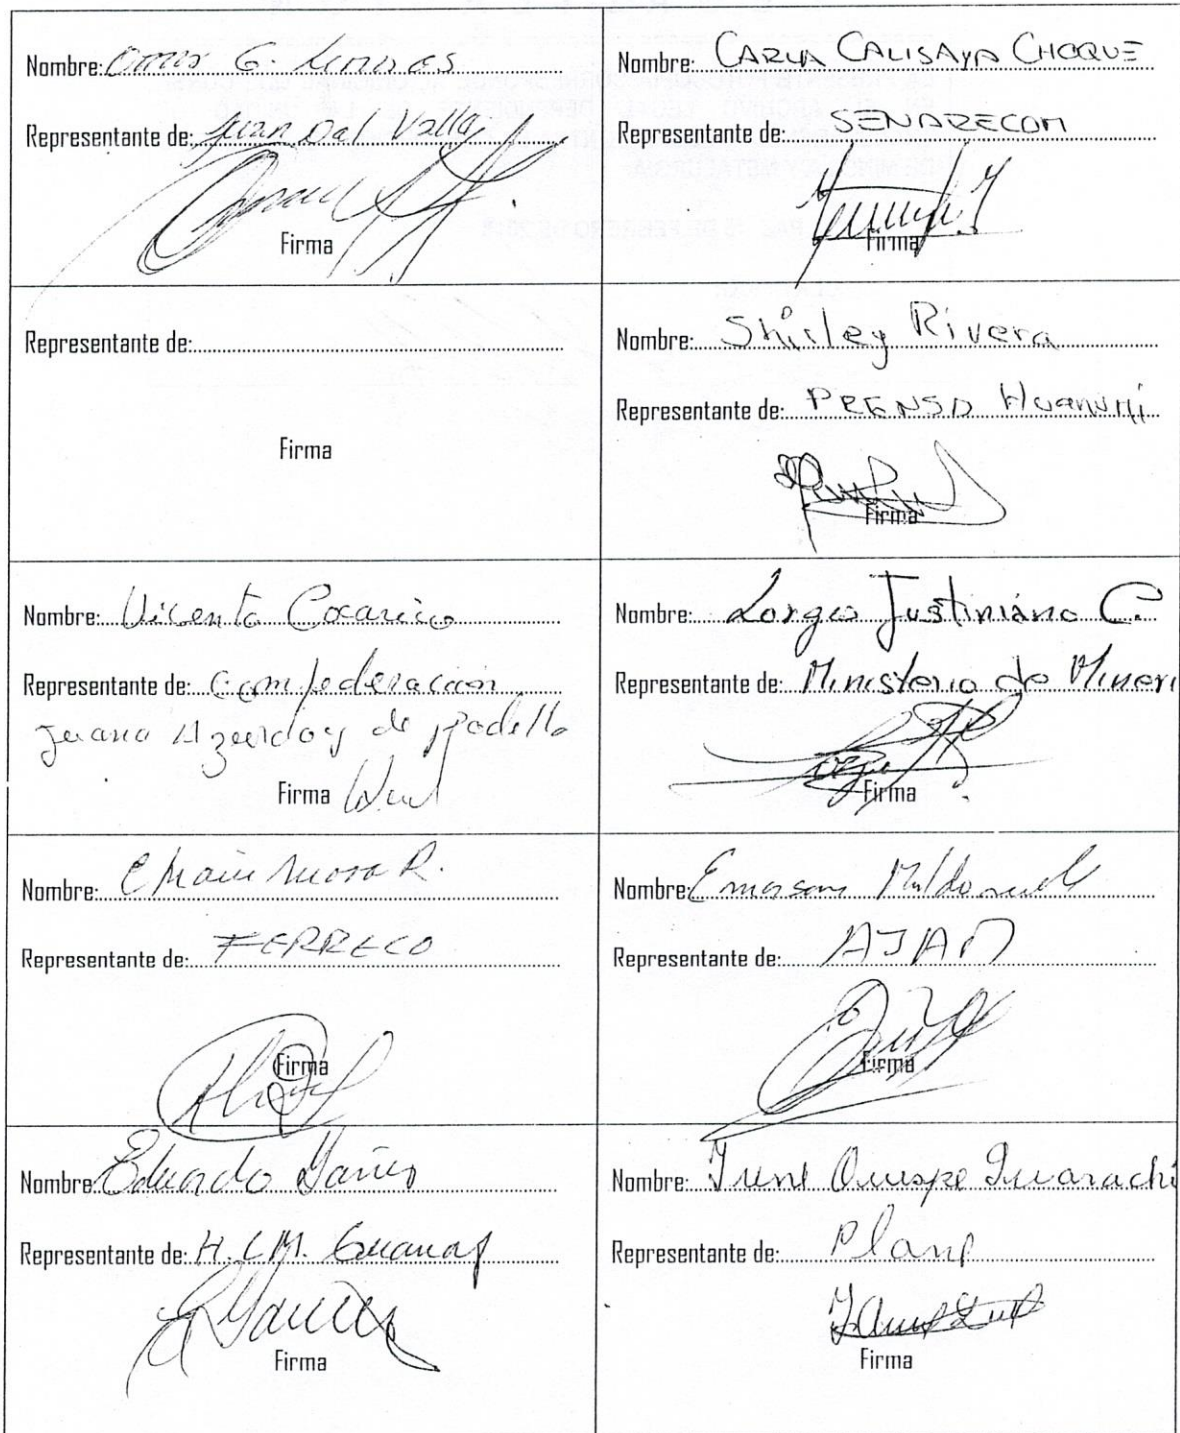 Nombre: Omar G. Linares
Representante de: Juan Del Valle
Firma
Nombre: CARLA CALISAYA CHOQUE
Representante de: SENARECOM
Firma
Representante de:
Firma
Nombre: Shirley Rivera
Representante de: PRENSA HUANUNI
Firma
Nombre: Vicente Cocarico
Representante de: Confederación
Juana Azurduy de Padilla
Firma
Nombre: Lorgio Justiniano C.
Representante de: Ministerio de Mineri
Firma
Nombre: R.
Representante de: FERRECO
Firma
Nombre: Emerson Maldonado
Representante de: AJAM
Firma
Nombre: Eduardo Yañez
Representante de: H.C.M.
Firma
Nombre: Irene Quispe Guarachi
Representante de: Plane
Firma
PAZ DE FEBRERO DE